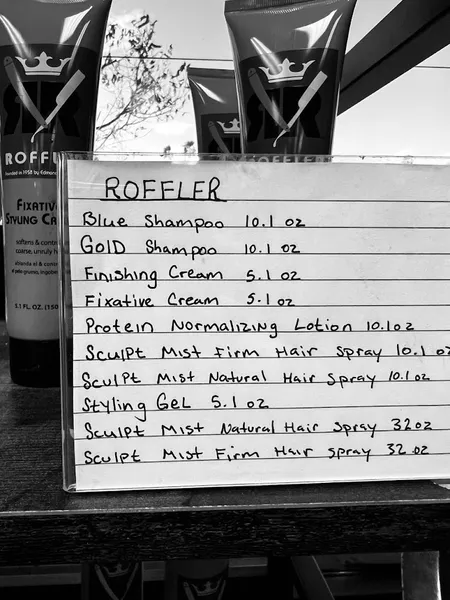 ROFFLER
Founded in 1958 by Edmond
FIXATIVE
STYLING CR
softens & contr
coarse, unruly h
5.1 FL. OZ. (150
ROFFLER
ROFFLER
Blue Shampoo 10.1 oz
GOLD Shampoo 10.1 oz
Finishing Cream 5.1 oz
Fixative Cream 5.1 oz
Protein Normalizing Lotion 10.1oz
Sculpt Mist Firm Hair Spray 10.1 oz
Sculpt Mist Natural Hair Spray 10.1 oz
Styling GeL 5.1 oz
Sculpt Mist Natural Hair Spray 32oz
Sculpt Mist Firm Hair Spray 32 oz